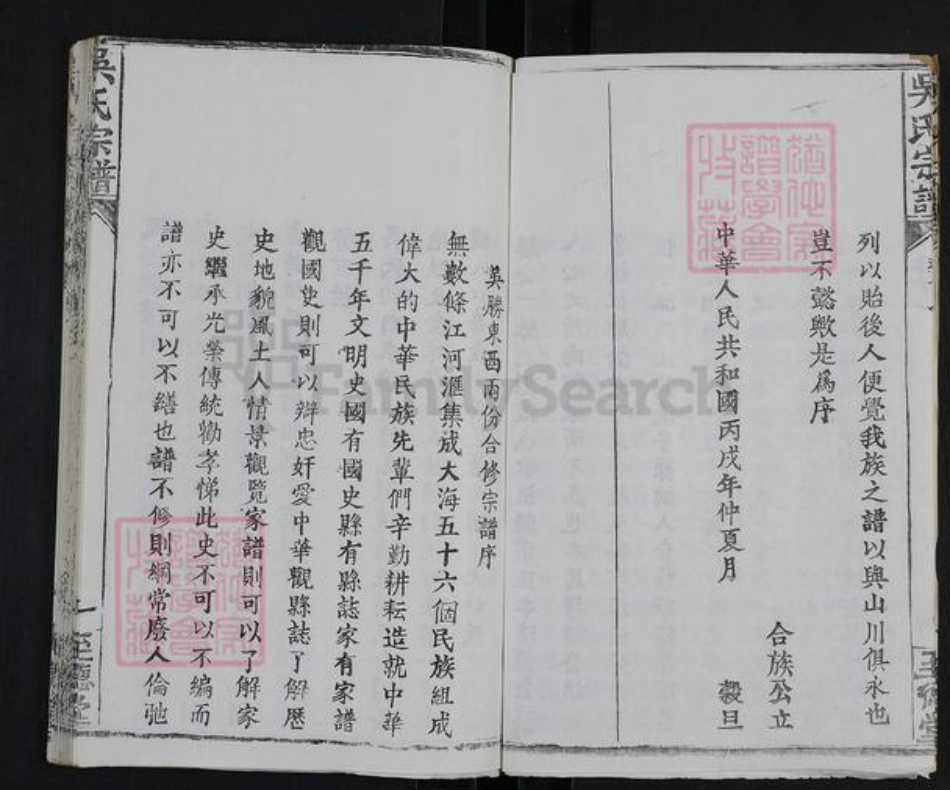 吳氏宗譜
列以貽後人便覺我族之譜以與山川俱永也
豈不懿歟是爲序
合族公立
中華人民共和國丙戌年仲夏月
穀旦
猶他家譜學會收藏
吳勝東西兩份合修宗譜序
無數條江河滙集成大海五十六個民族組成
偉大的中華民族先輩們辛勤耕耘造就中華
五千年文明史國有國史縣有縣誌家有家譜
觀國史則可以辩忠奸愛中華觀縣誌了解歷
史地貌風土人情景觀覽家譜則可以了解家
史繼承光榮傳統勸孝悌此史不可以不編而
譜亦不可以不繕也譜不修則綱常廢人倫弛
吳氏宗譜
一
至德堂
FamilySearch